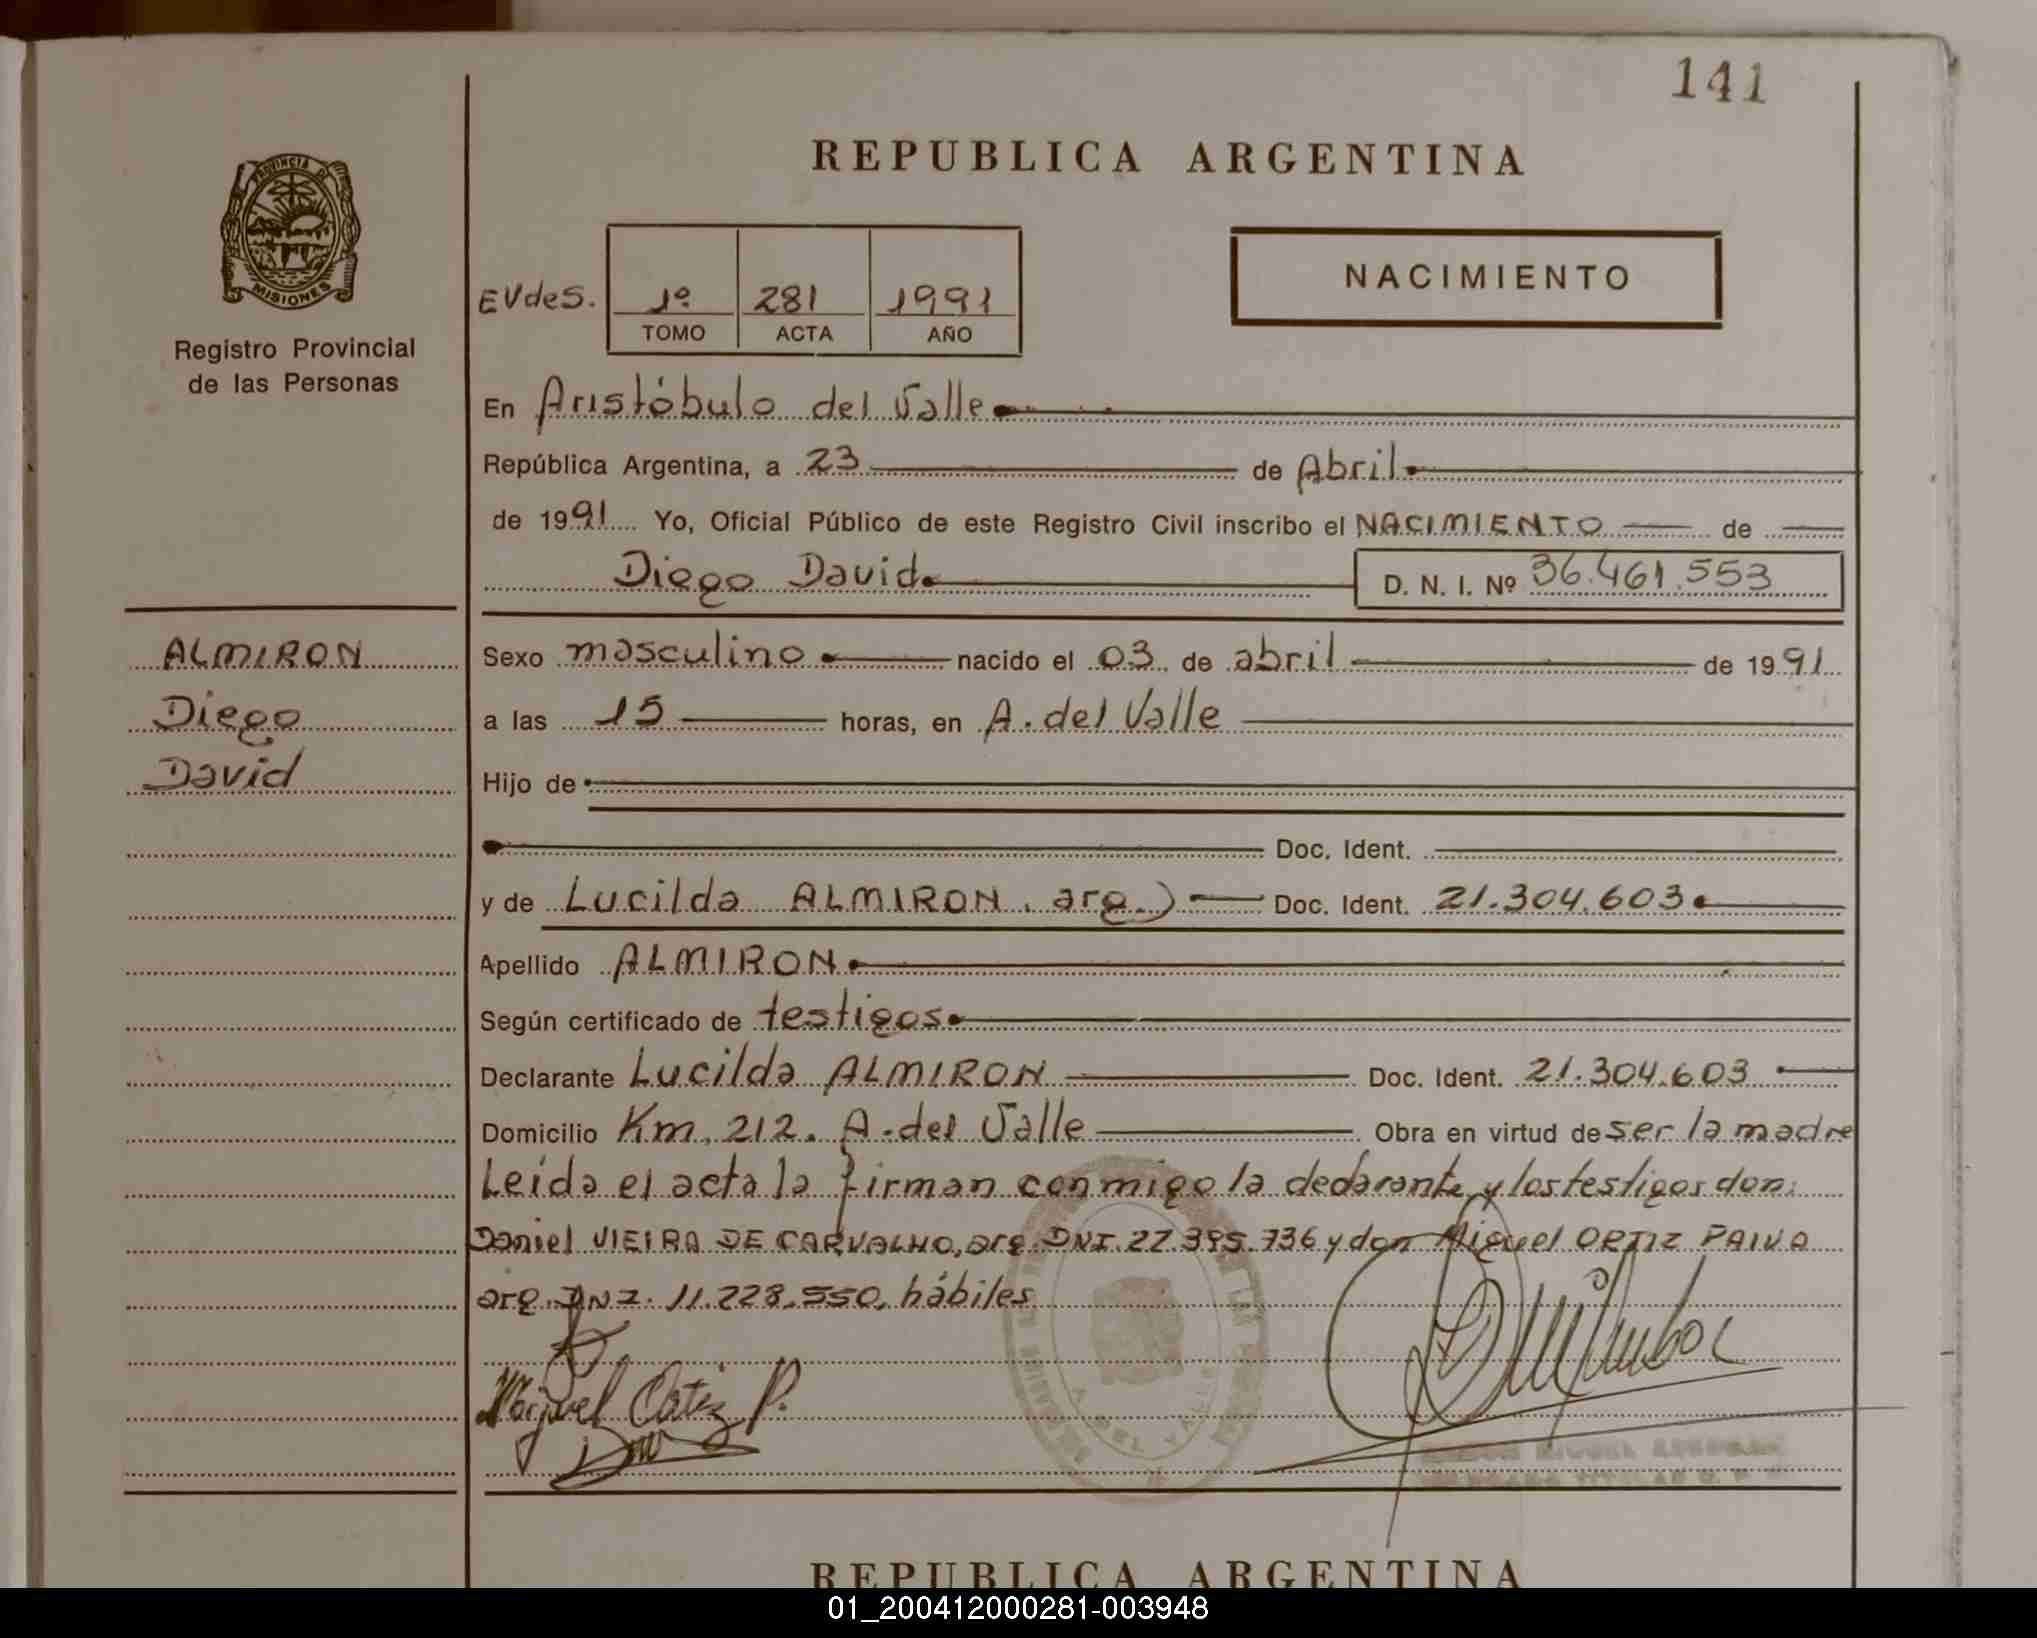 141
REPUBLICA ARGENTINA
PROVINCIA DE
MISIONES
Registro Provincial
de las Personas
EVdes. 1º 281 1991
TOMO ACTA AÑO
NACIMIENTO
En Aristóbulo del Valle
República Argentina, a 23 de Abril
de 1991 Yo, Oficial Público de este Registro Civil inscribo el NACIMIENTO de
Diego David D. N. I. Nº 36.461.553
ALMIRON
Diego
David
Sexo masculino nacido el 03 de abril de 1991
a las 15 horas, en A. del Valle
Hijo de
Doc. Ident.
y de Lucilda ALMIRON. arg.) Doc. Ident. 21.304.603
Apellido ALMIRON
Según certificado de testigos
Declarante Lucilda ALMIRON Doc. Ident. 21.304.603
Domicilio Km. 212. A. del Valle Obra en virtud de ser la madre
Leída el acta la firman conmigo la declarante y los testigos don:
Daniel VIEIRA DE CARVALHO, arg. DNI. 22.395.736 y don Miguel ORTIZ PAIVA
arg. DNI. 11.228.550, hábiles
Miguel Ortiz P.
REPUBLICA ARGENTINA
01_200412000281-003948